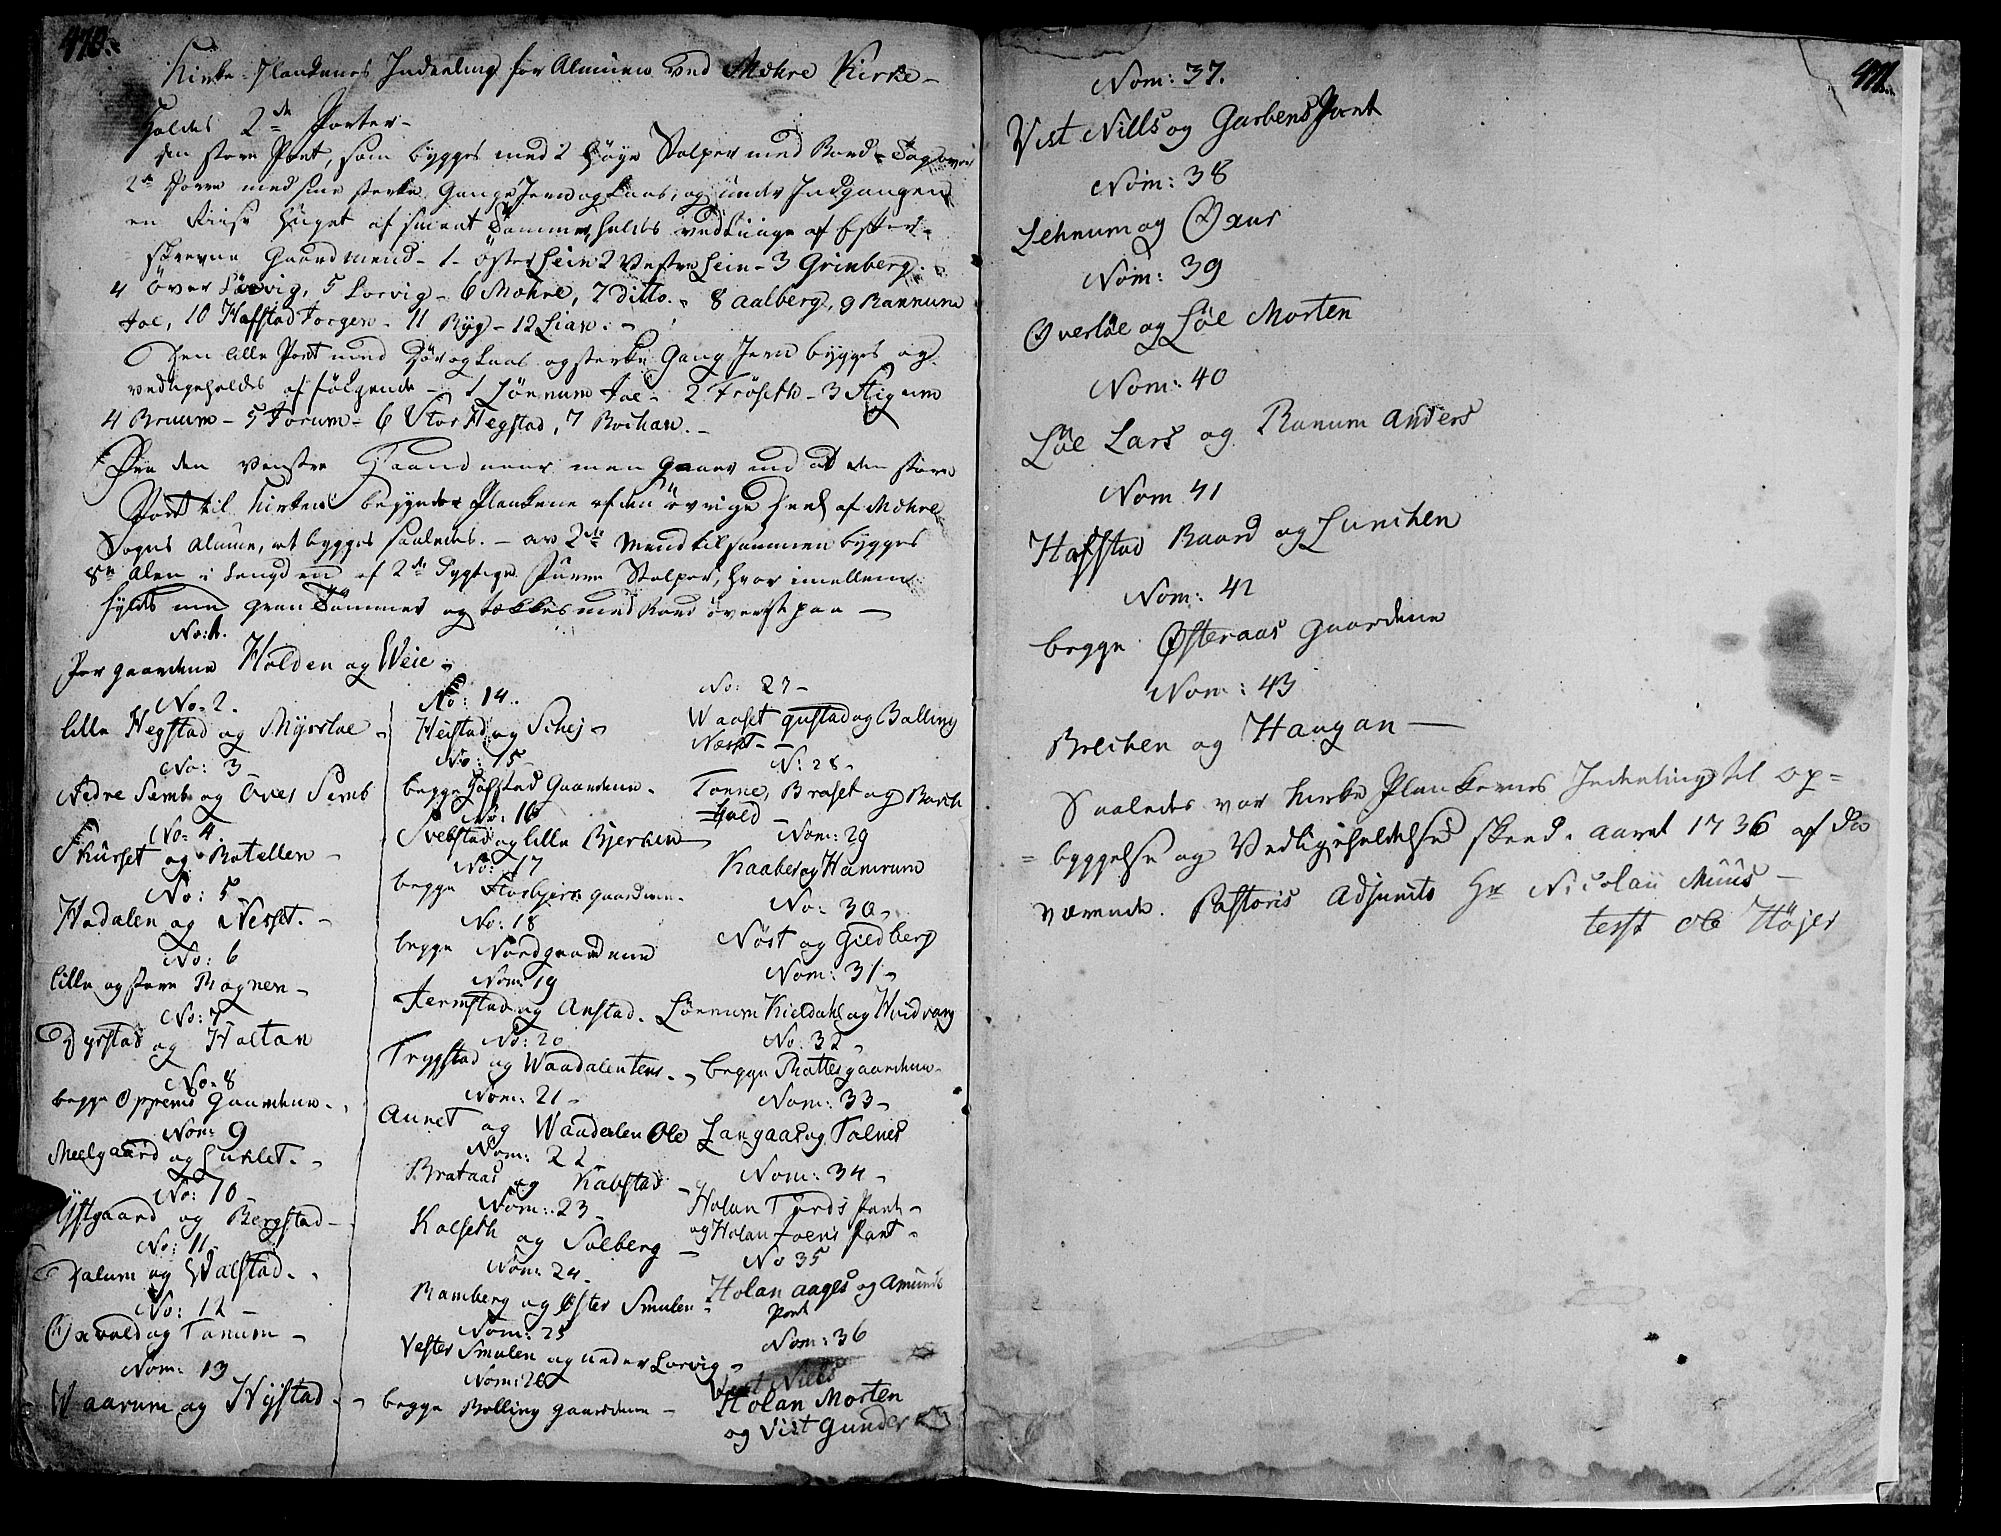 470.
Kirke-Plankenes Indeeling for Almuen ved Mohre Kirke-
Holdes 2de Porter-
den store Port, som bygges med 2 høye Stolper med Bord-Tag over
2de Dørre med sine sterke Gange Jern og Laas, og under Indgangen
en Riist hugget af smaat Tømmer, holdes vedliige af Efter-
skrevne Gaardmænd - 1 - öster Hein 2 Vestre Hein - 3 Grinberg.
4 över Lörvig, 5 Lorvig - 6 Mohre, 7 ditto. 8 Aalberg, 9 Rannum
Joe, 10 Hafstad Jorgen - 11 Ryg - 12 Lian. -
Den lille Port med Dør og Laas og sterke Gang Jern bygges og
vedligeholdes af følgende - 1 Lönnum Joe - 2 Fröseth - 3 Stigum
4 Bruum - 5 Forum - 6 Stor Hegstad, 7 Bochan. -
Paa den venstre Haand naar man gaaer ud at den store
Port til Kirken begynder Plankene af den övrige Deel af Mohre
Sogns Almue, at bygges saaledes. - at 2de Mænd tilsammen bygges
8te Alen i Længden af 2de Dygtige Furre Stolper, hvor imellem
fyldes med Gran Tömmer og tækkes med Bord överst paa -
No: 1.
for gaardene Holden og Weie -
No. 2.
lille Hegstad og Myrsloe -
No: 3
Nedre Semb og över Semb
No: 4
Skurset og Botellen -
No: 5
Hodalen og Nesset. -
No: 6
lille og store Rognen -
No: 7
Dyrstad og Holtan
No. 8
begge Oppems Gaardene. -
Nom: 9
Meelgaard og Lunlet. -
No: 10
Ystgaard og Bergstad -
No: 11
Dalum og Walstad. -
No: 12 -
Oxvold og Tanum -
Nom: 13
Waarum og Hystad. -
No: 14.
Heistad og Schej -
No: 15
begge Hofstad Gaardene -
No: 16
Svebstad og lille Bjerken
No: 17
begge Storbjerk gaardene -
No: 18
begge Nordgaardene
Nom: 19
Jermstad og Anstad.
No: 20
Trygstad og Waadalen Tens. -
Nom: 21 -
Aunet og Waadalen Ole
Nom: 22
Brataas og Kabstad -
Nom: 23 -
Kolseth og Solberg -
Nom: 24 -
Ramberg og Öster Smulen -
Nom: 25
Vester Smulen og under Lorvig -
Nom: 26
begge Bolling gaardene -
No: 27 -
Waaset gustad og Balling
Næss - -
N: 28 -
Tonne, Braset og Barch
Hald -
Nom: 29
Kaaber og Hamrum
No: 30 -
Nöst og Giedberg
Nom: 31 -
Lönnum Kieldahl og Hvidvang
No: 32 -
begge Skattes gaardene -
Nom: 33 -
Langaas og Tolnes
Nom: 34 -
Holan Tords Part -
og Holan Joens Part -
No 35
Holan Aages og Amunds
Part
Nom: 36
Holan Morten
og Vist Gunder
471.
Nom: 37.
Vist Nills og Garbens Part
Nom: 38
Lehnum og Oxur
Nom: 39
Overløe og Løe Morten
Nom: 40
Løe Lars og Ranum Anders
Nom 41
Hafstad Baard og Lunchen
Nom: 42
begge Østeraas Gaardene
Nom: 43
Brechen og Haugan -
Saaledes var Kirke Plankernes Indeeling til Op=
=byggelse og Vedligeholdelse skeed. Aaret 1736 af da
værende Pastoris Adjuncto Hr Nicolaii Muus -
test Ole Højer